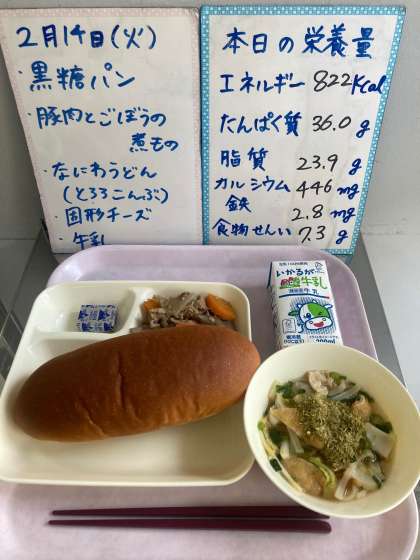 2月14日(火)
・黒糖パン
・豚肉とごぼうの
煮もの
・なにわうどん
(とろろこんぶ)
・固形チーズ
・牛乳
本日の栄養量
エネルギー 822Kcal
たんぱく質 36.0 g
脂質 23.9 g
カルシウム 446 mg
鉄 2.8 mg
食物せんい 7.3 g
いかるが
牛乳